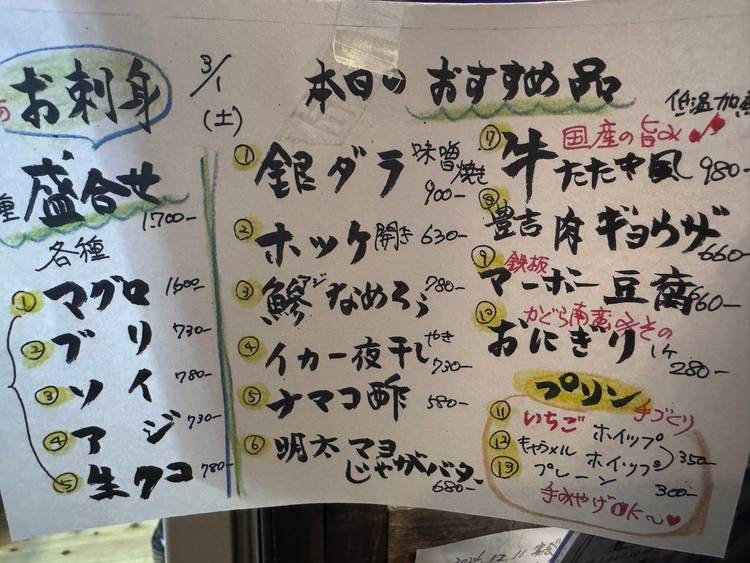 お刺身
盛合せ
種
1.700-
各種
① マグロ 1600-
② ブリ 730-
③ ソイ 780-
④ アジ 730-
⑤ 生タコ 780-
3/1
(土)
本日のおすすめ品
① 銀ダラ 味噌焼き 900-
② ホッケ開き 630-
③ 鯵アジなめろう 780-
④ イカ一夜干し やき 730-
⑤ ナマコ酢 580-
⑥ 明太マヨ
じゃがバター
680-
低温加
⑦ 国産の旨み♪
牛たたき風 980-
⑧ 豊吉肉ギョウザ 660-
⑨ 鉄板
マーボー豆腐 960-
⑩ かぐら南蛮みその
おにぎり 1ケ 280-
プリン
手づくり
⑪ いちごホイップ
⑫ キャラメルホイップ 350-
⑬ プレーン 300-
手みやげOK～♥
12.11